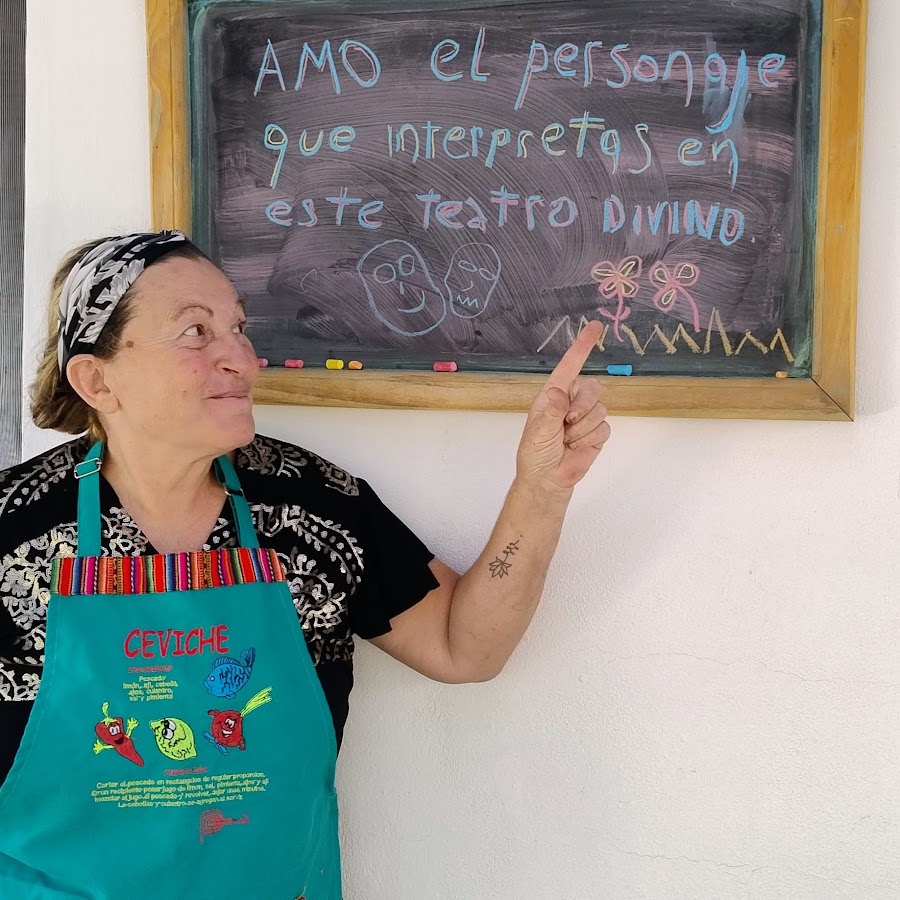 AMO el personaje
que interpretas en
este teatro DIVINO.
CEVICHE
Pescado
limón, ají, cebolla,
ajos, culantro,
sal y pimienta
Cortar el pescado en rectangulos de regular proporcion.
En un recipiente poner jugo de limon, sal, pimienta, ajos y aji
mezclar el jugo al pescado y revolver, dejar unos minutos.
La cebolla y culantro se agregan al servir